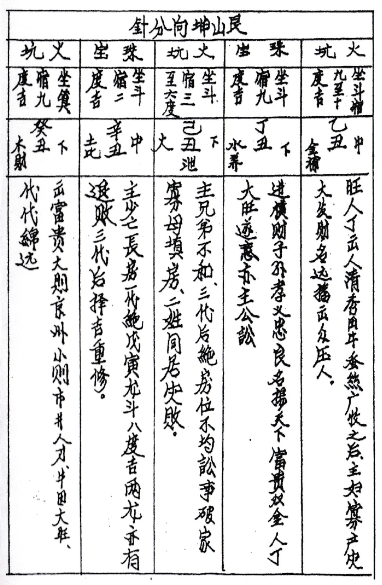 艮山坤向分針
火坑
坐斗宿
九至十
度吉
乙丑
中
金
旺人丁出人清秀田牛蚕丝广收之后主妇寡产史
大发财名远播出众压人。
珠宝
坐斗
宿九
度吉
丁丑
下
水养
进横财子孙孝义忠良名揚天下富贵双全人丁
大旺逐恶亦主公訟
火坑
坐斗
宿三
至六度
己丑池
下
火
主兄弟不和、三代后绝房位不均訟事破家
寡母填房、二姓同居失败。
珠宝
坐斗
宿二
度吉
辛丑
中
主少亡長房一代絶戊寅龙斗八度吉两龙亦有
退败三代后择吉重修。
火坑
坐箕
宿九
度吉
癸丑
下
出富貴大則京州小則市井人才、牛田大旺、
代代綿远